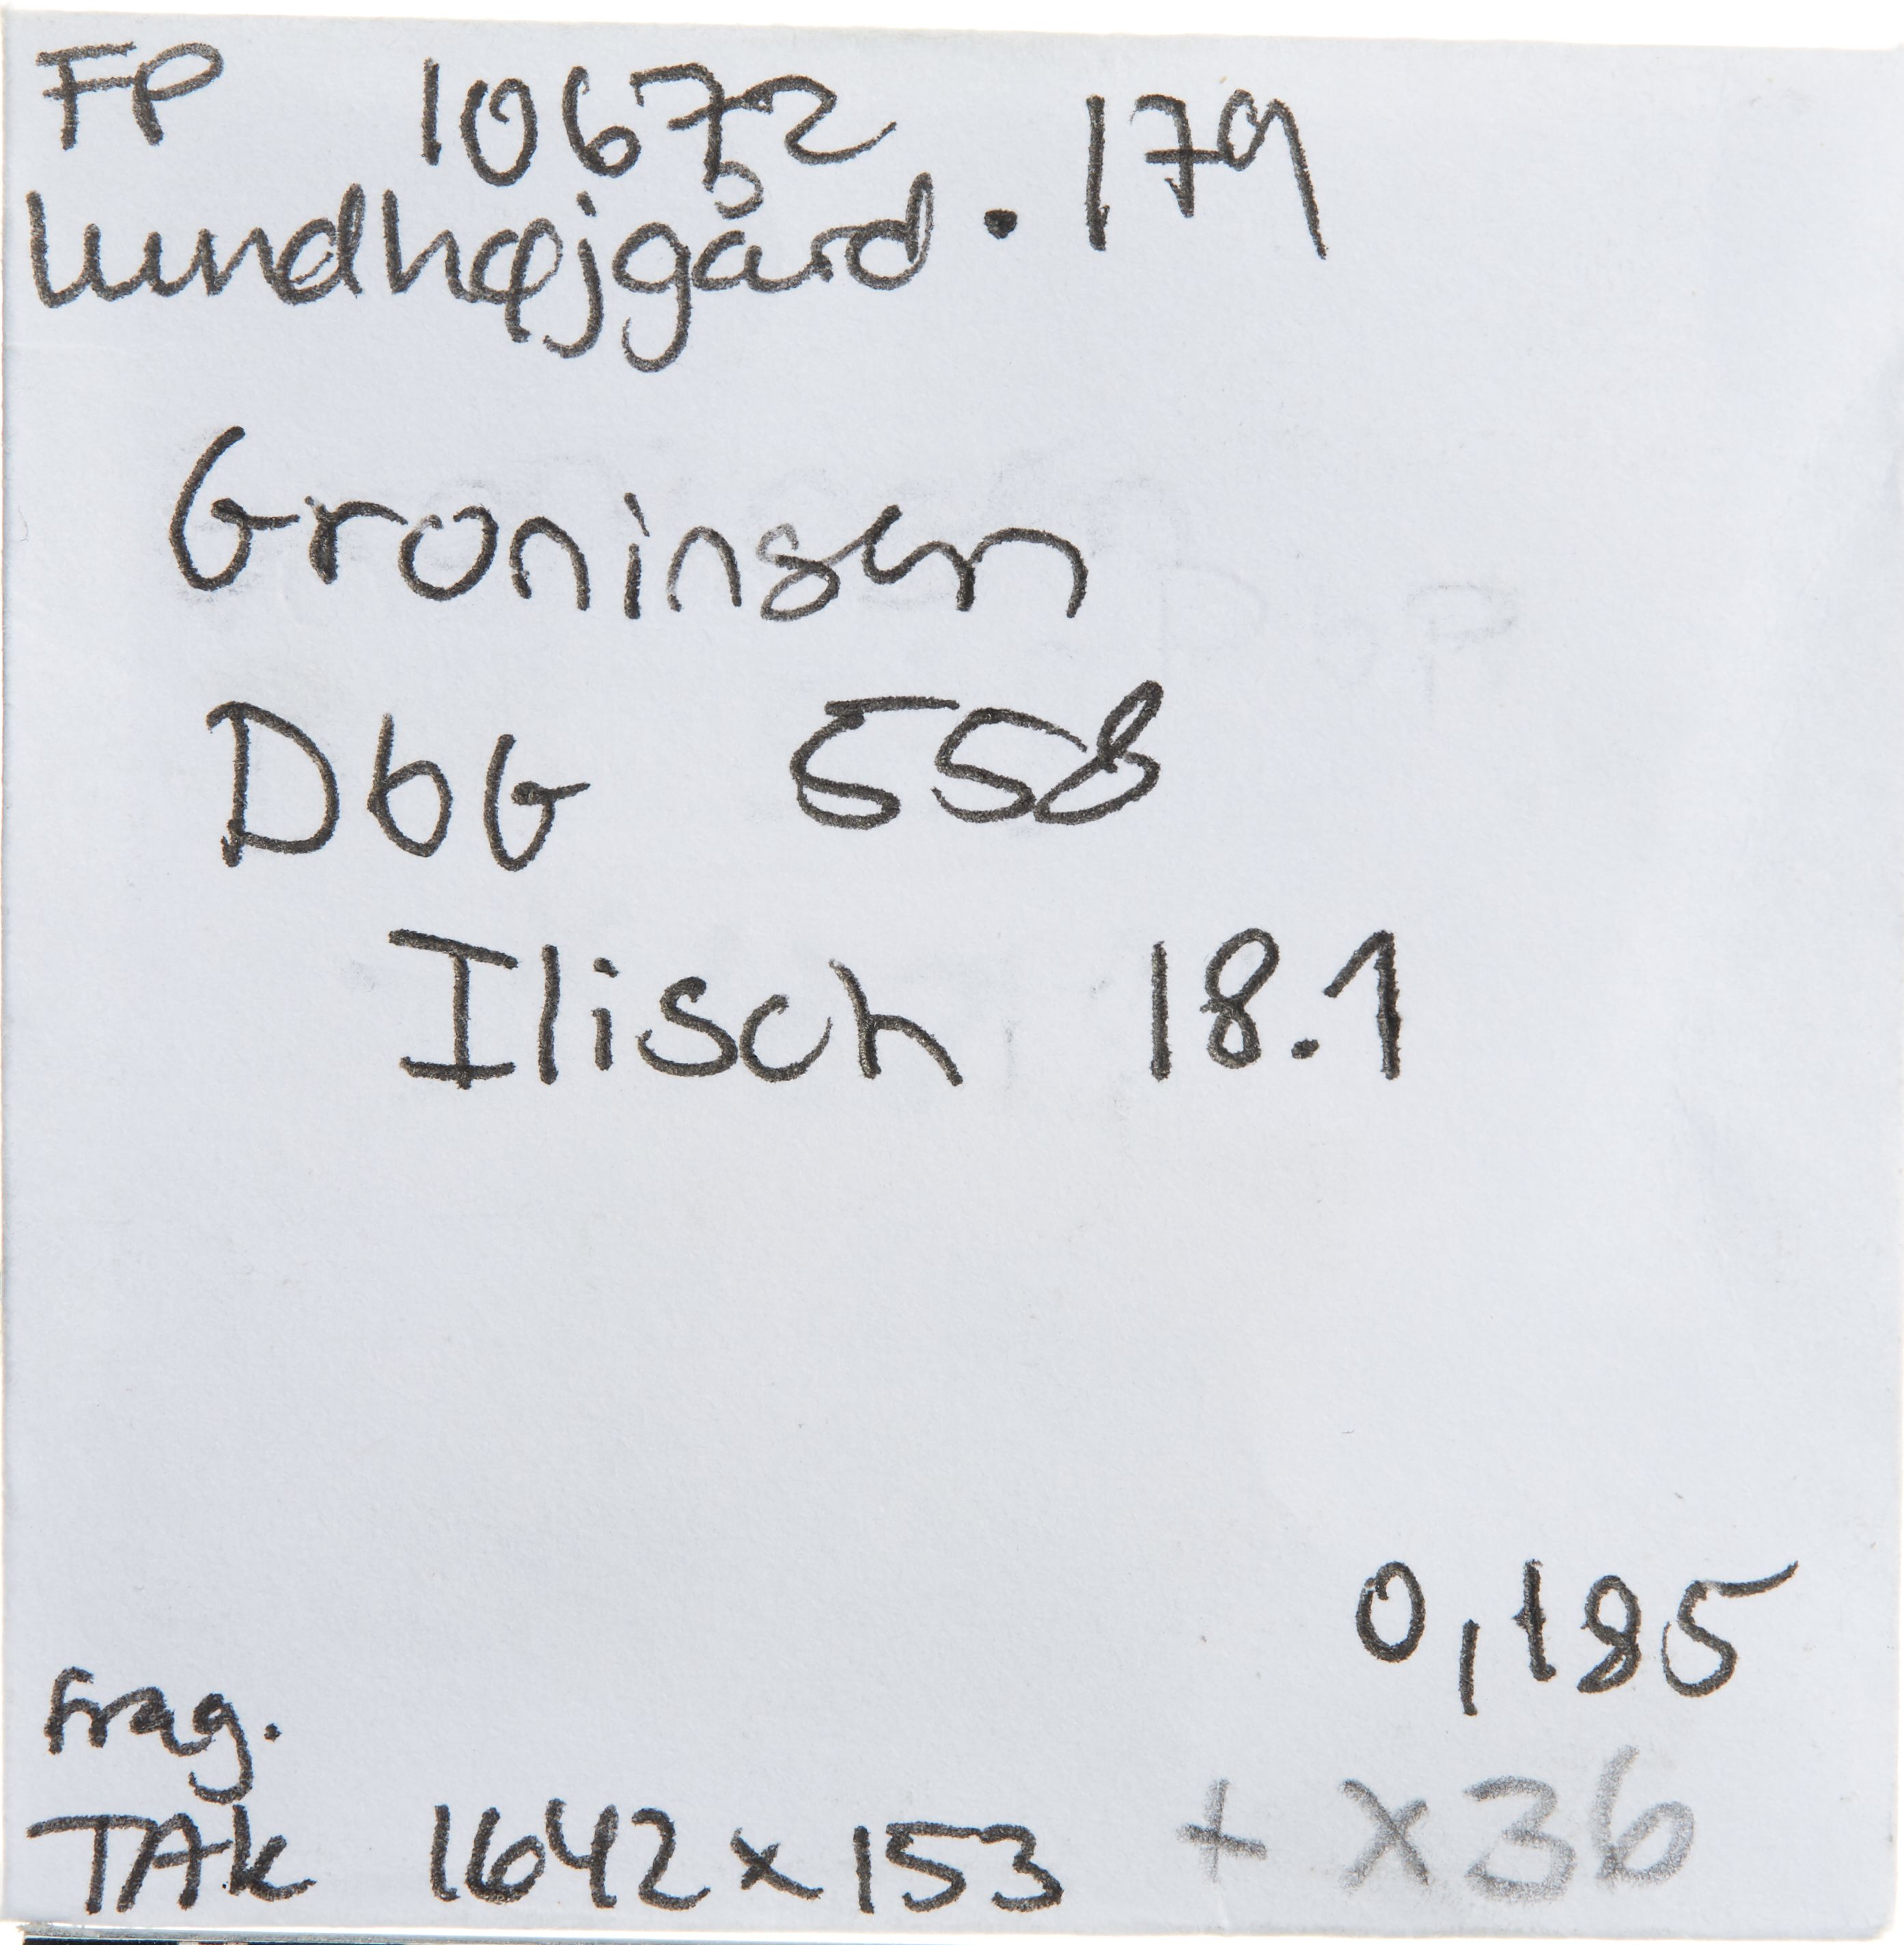 FP 10672 . 179
Lundhøjgård
Groningen
DbG 558
Ilisch 18.1
0,185
Frag.
TAK 1642 x 153 + x36